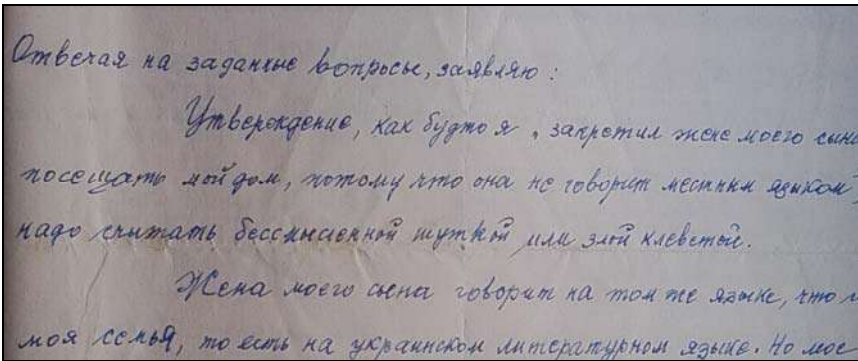 Отвечая на заданные вопросы, заявляю:
Утверждение, как будто я, запретил жене моего сына
посещать мой дом, потому что она не говорит местным языком,
надо считать бессмысленной шуткой или злой клеветой.
Жена моего сына говорит на том же языке, что
моя семья, то есть на украинском литературном языке. Но мое